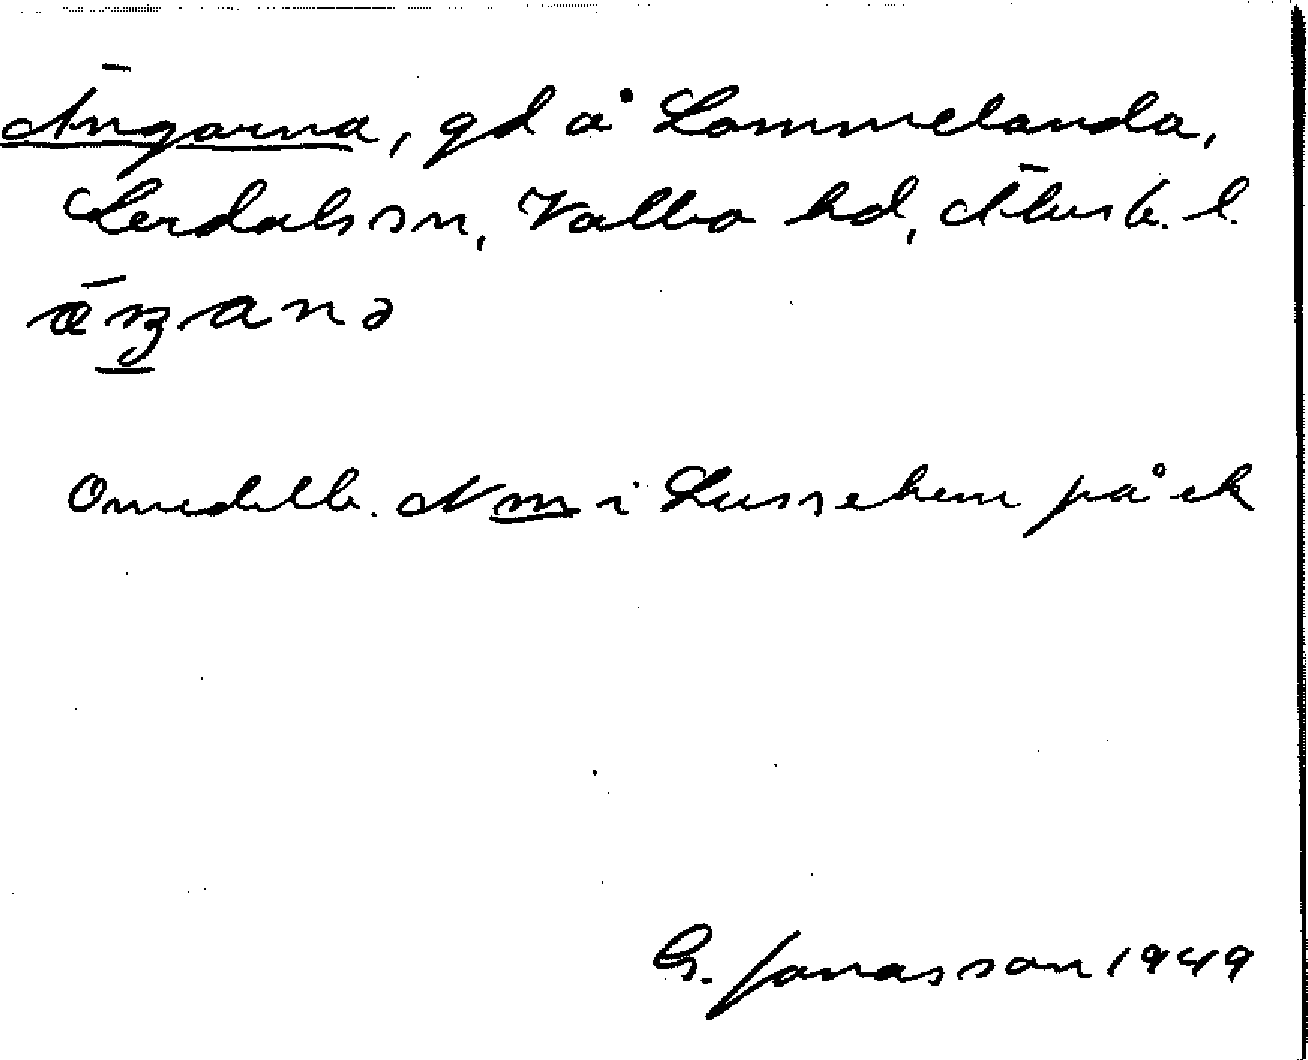 Ängarna, gd å Lommelanda,
Lerdals sn, Valbo hd, Älvsb. l.
Omedelb. N m i Lussehem på ek
G. Jonasson 1949